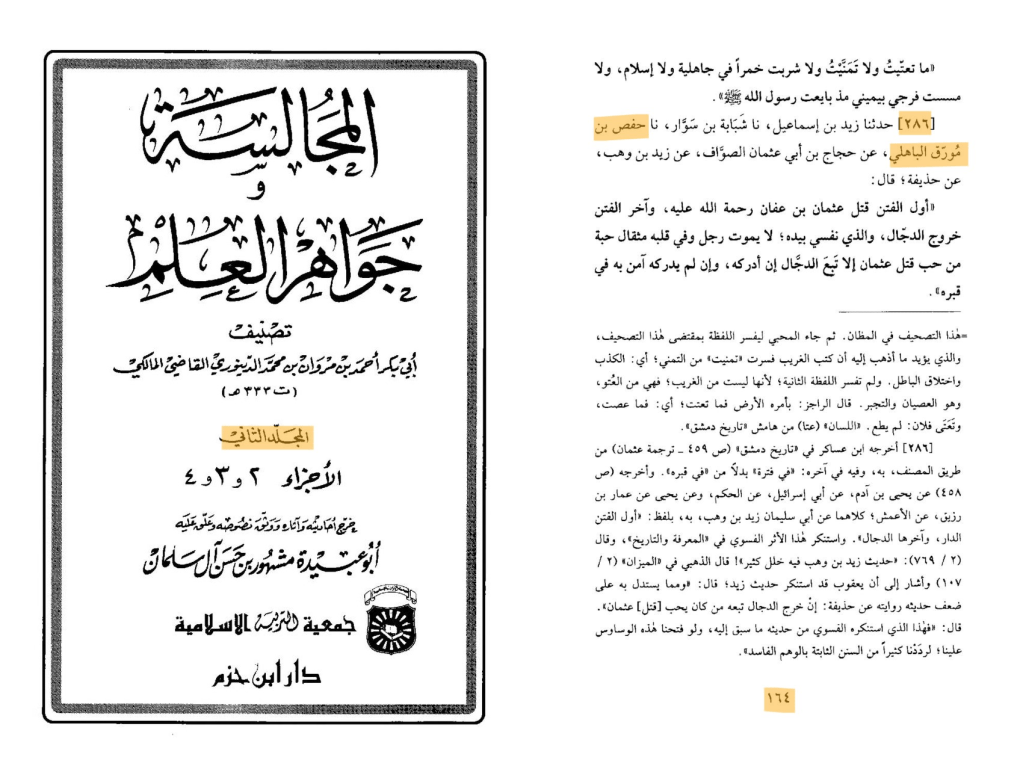 المجالسة
و
جواهر العلم
تصنيف
أبي بكر أحمد بن مروان بن محمد الدينوري القاضي المالكي
(ت ٣٣٣ هـ)
المجلد الثاني
الأجزاء ٢ و ٣ و ٤
خرج أحاديثه وآثاره ووثق نصوصه وعلق عليه
أبو عبيدة مشهور بن حسن آل سلمان
جمعية التربية الإسلامية
دار ابن حزم
«ما تعنّيتُ ولا تَمَنَّيْتُ ولا شربت خمراً في جاهلية ولا إسلام، ولا
مسست فرجي بيميني مذ بايعت رسول الله ﷺ».
[٢٨٦] حدثنا زيد بن إسماعيل، نا شَبَابة بن سَوَّار، نا حفص بن
مُورّق الباهلي، عن حجاج بن أبي عثمان الصوَّاف، عن زيد بن وهب،
عن حذيفة؛ قال:
«أول الفتن قتل عثمان بن عفان رحمة الله عليه، وآخر الفتن
خروج الدجّال، والذي نفسي بيده؛ لا يموت رجل وفي قلبه مثقال حبة
من حب قتل عثمان إلا تَبعَ الدجَّال إن أدركه، وإن لم يدركه آمن به في
قبره».
=هٰذا التصحيف في المظان. ثم جاء المحبي ليفسر اللفظة بمقتضى هٰذا التصحيف،
والذي يؤيد ما أذهب إليه أن كتب الغريب فسرت «تمنيت» من التمني؛ أي: الكذب
واختلاق الباطل. ولم تفسر اللفظة الثانية؛ لأنها ليست من الغريب؛ فهي من العُتو،
وهو العصيان والتجبر. قال الراجز: بأمره الأرض فما تعتت؛ أي: فما عصت،
وتَعَتَّى فلان: لم يطع. «اللسان» (عتا) من هامش «تاريخ دمشق».
[٢٨٦] أخرجه ابن عساكر في «تاريخ دمشق» (ص ٤٥٩ ـ ترجمة عثمان) من
طريق المصنف، به، وفيه في آخره: «في فترة» بدلاً من «في قبره». وأخرجه (ص
٤٥٨) عن يحيى بن آدم، عن أبي إسرائيل، عن الحكم، وعن يحيى عن عمار بن
رزيق، عن الأعمش؛ كلاهما عن أبي سليمان زيد بن وهب، به، بلفظ: «أول الفتن
الدار، وآخرها الدجال». واستنكر هٰذا الأثر الفسوي في «المعرفة والتاريخ»، وقال
(٢ / ٧٦٩): «حديث زيد بن وهب فيه خلل كثير»! قال الذهبي في «الميزان» (٢ /
١٠٧) وأشار إلى أن يعقوب قد استنكر حديث زيد؛ قال: «ومما يستدل به على
ضعف حديثه روايته عن حذيفة: إنْ خرج الدجال تبعه من كان يحب [قتل] عثمان».
قال: «فهٰذا الذي استنكره الفسوي من حديثه ما سبق إليه، ولو فتحنا هٰذه الوساوس
علينا؛ لردَدْنا كثيراً من السنن الثابتة بالوهم الفاسد».
١٦٤